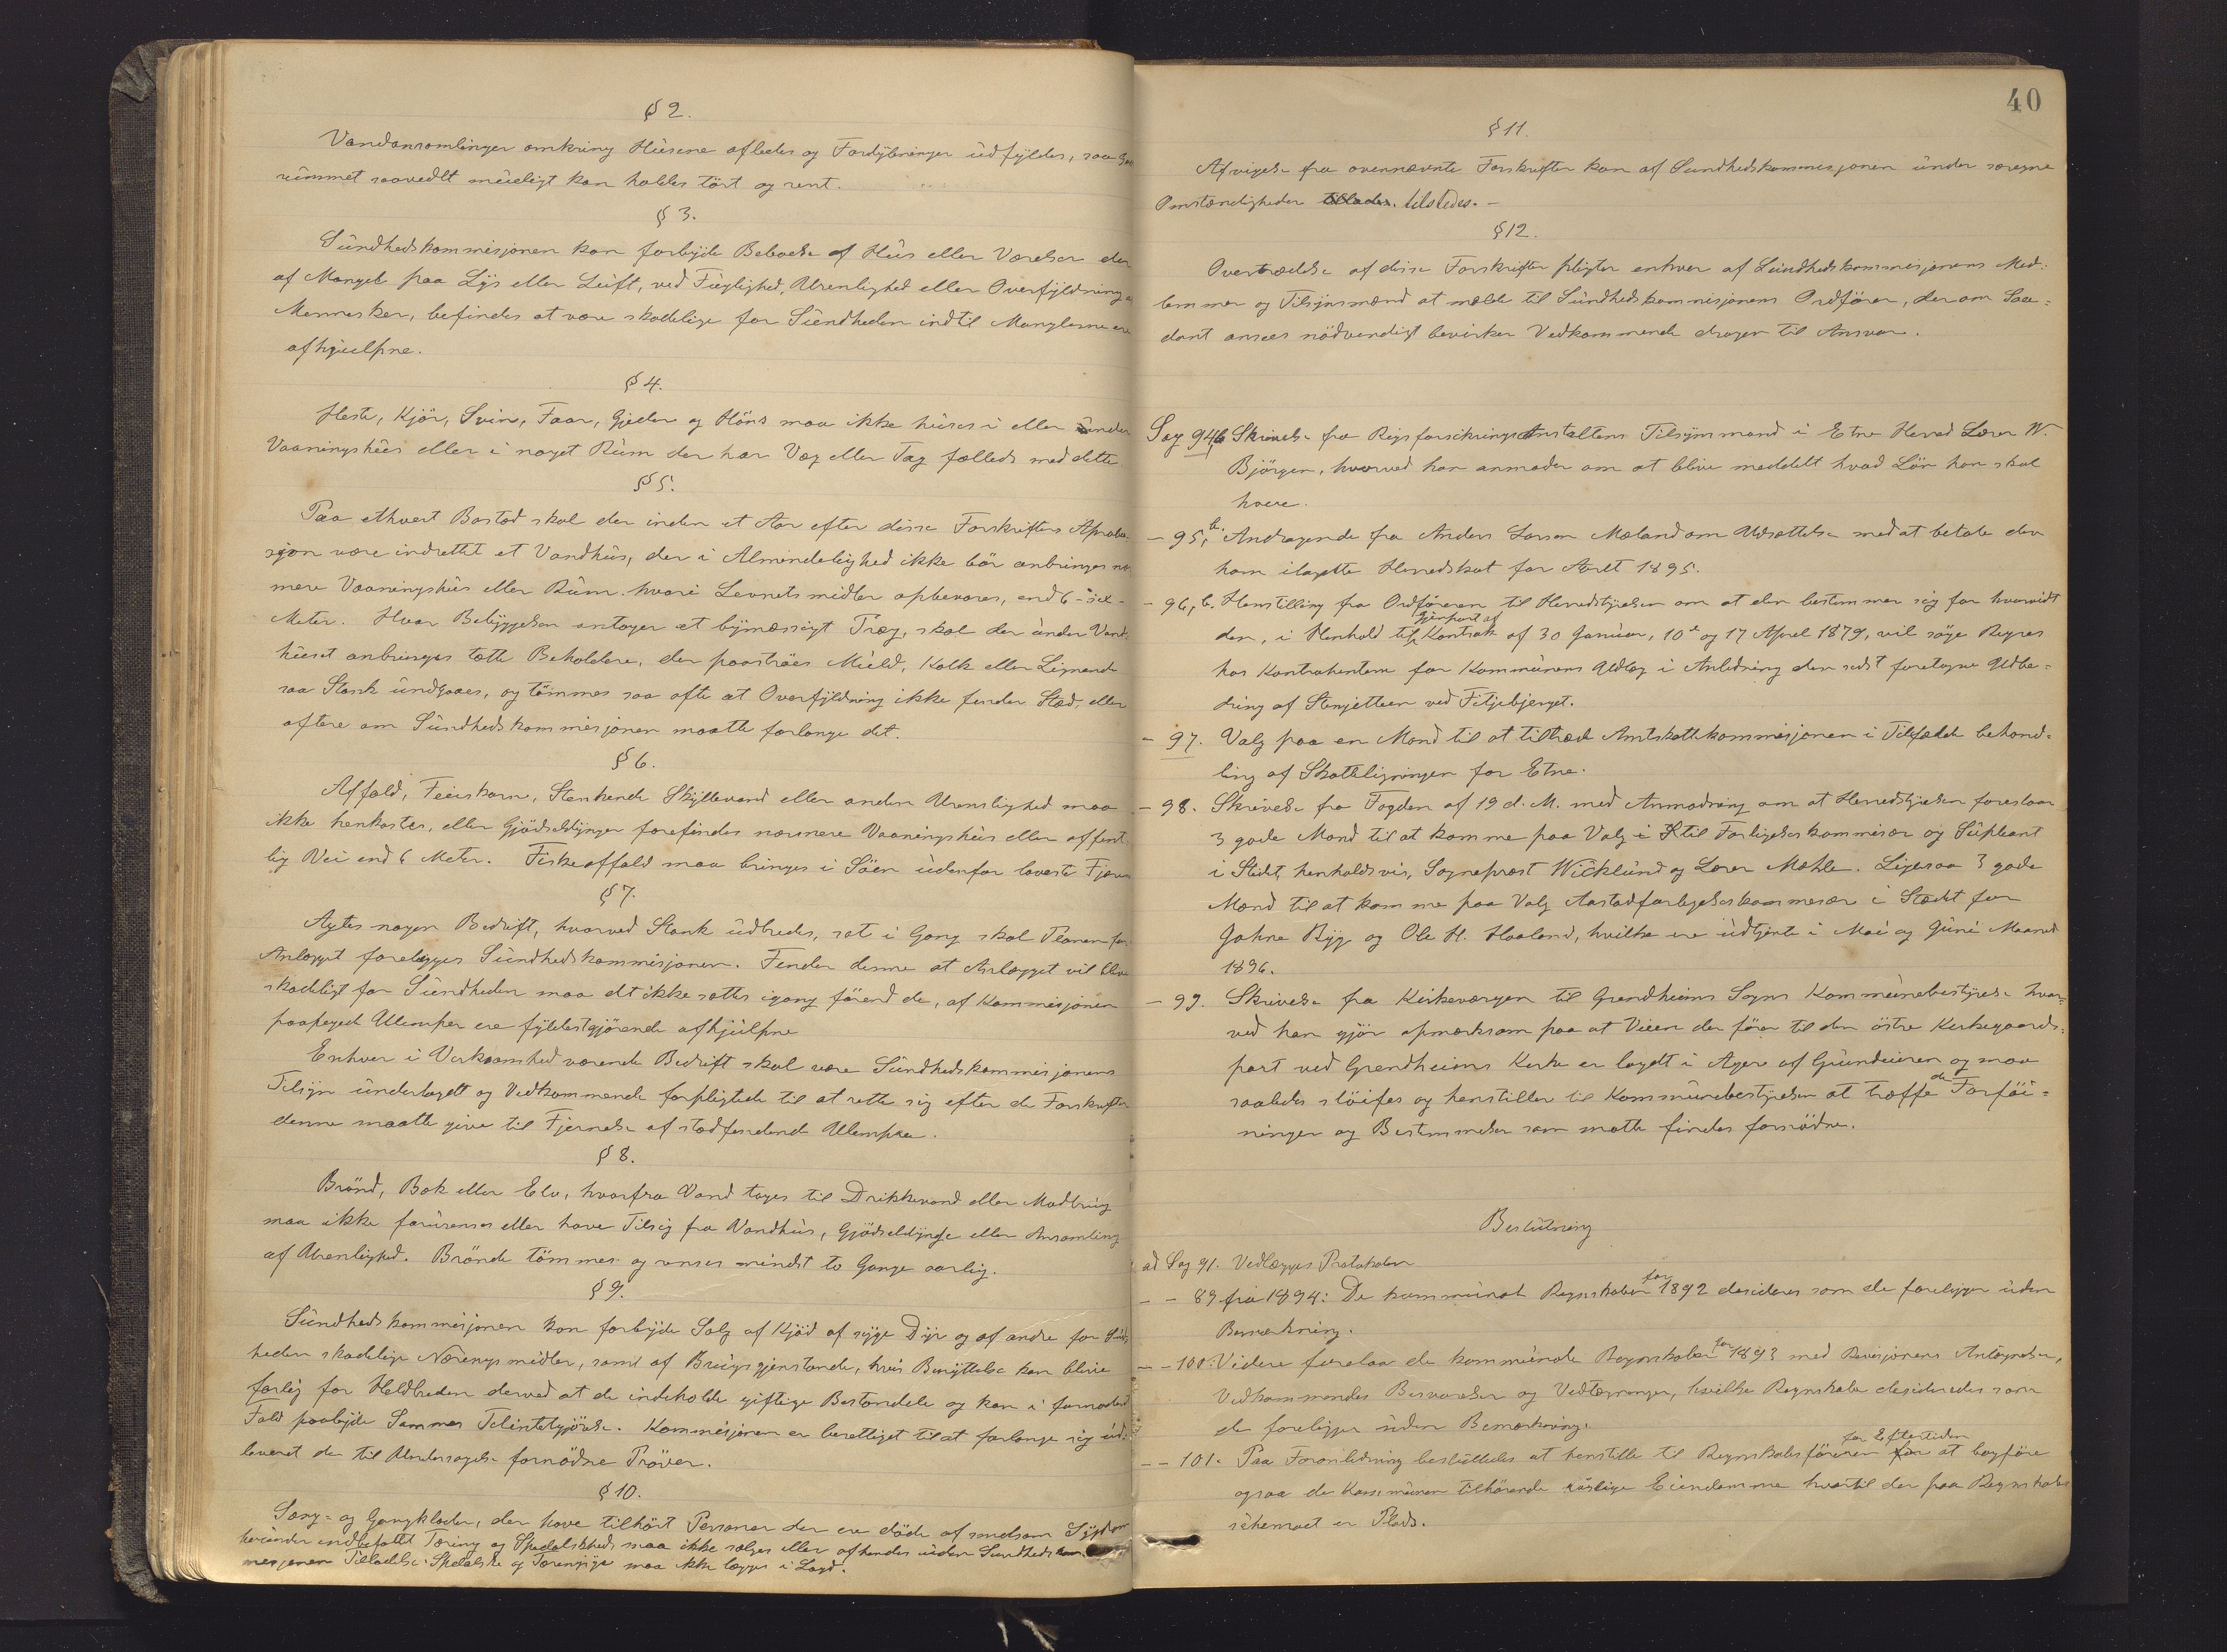 § 2.
Vandansamlinger omkring Husene afledes og Fordybninger udfyldes, saa
rummet saavidt mueligt kan holdes tört og rent.
§ 3.
Sundhedskommisjonen kan forbyde Beboelse af Hus eller Værelser der
af Mangel paa Lys eller Luft, ved Fugtighed, Urenlighed eller Overfyldning
Mennesker, befindes at være skadelige for Sundheden indtil Manglerne ere
afhjulpne.
§ 4.
Heste, Kjör, Svin, Faar, Gjeder og Höns maa ikke huses i eller under
Vaaningshus eller i noget Rum der har Væg eller Tag fælleds med dette.
§ 5.
Paa ethvert Bosted skal der inden et Aar efter disse Forskrifters Aproba-
sjon være indrettet et Vandhus, der i Almindelighed ikke bör anbringes
mere Vaaningshus eller Rum hvori Levnetsmidler opbevares, end 6 - sex -
Meter. Hvor Bebyggelsen antager et bymæssigt Præg, skal der under Vand-
huset anbringes tætte Beholdere, der paaströes Muld, Kalk eller Lignende
saa Stank undgaaes, og tömmes saa ofte at Overfyldning ikke finder Sted, eller
oftere om Sundhedskommisjonen maatte forlange det.
§ 6.
Affald, Feieskarn, Stinkende Skyllevand eller anden Urenslighed maa
ikke henkastes, eller Gjödseldynger forefindes nærmere Vaaningshus eller offent
lig Vei end 6 Meter. Fiskeaffald maa bringes i Söen udenfor laveste Fjære
§ 7.
Agtes nogen Bedrift, hvorved Stank udbredes, sat i Gang skal Planen for
Anlægget forelægges Sundhedskommisjonen. Finder denne at Anlægget vil blive
skadeligt for Sundheden maa det ikke sættes igang förend de, af Kommisjonen
paapegede Ulemper ere fyldestgjörende afhjulpne
Enhver i Virksomhed værende Bedrift skal være Sundhedskommisjonens
Tilsyn underlagdt og Vedkommende forpligtede til at rette sig efter de Forskrifter
denne maatte give til Fjernelse af stadfindende Ulemper.
§ 8.
Brönd, Bæk eller Elv, hvorfra Vand tages til Drikkevand eller Madbrug
maa ikke forurenses eller have Tilsig fra Vandhus, Gjödseldynge eller Ansamling
af Urenlighed. Brönde tömmes og renses mindst to Gange aarlig.
§ 9.
Sundhedskommisjonen kan forbyde Salg af Kjöd af syge Dyr og af andre for Sund
heden skadelige Næringsmidler, samt af Brugsgjenstande, hvis Benyttelse kan blive
farlig for Heldbreden derved at de indeholde giftige Bestandele og kan i fornødent
Fald paabyde Sammes Tilintetgjörelse. Kommisjonen er berettiget til at forlange sig ud-
leveret de til Undersögelse fornödne Pröver.
§ 10.
Sæng- og Gangklæder, der have tilhört Personer der ere döde af smitsom Sygdom
herunder indbefattet Tæring og Spedalskhed maa ikke sælges eller afhendes uden Sundhedskom
misjonens Tilladelse. Spedalske og Tæringsyge maa ikke lægges i Lægd.
40
§ 11.
Afvigelse fra ovennævnte Forskrifter kan af Sundhedskommisjonen under særegne
Omstændigheder tilstedes. -
§ 12.
Overtrædelse af disse Forskrifter pligter enhver af Sundhedskommisjonens Med-
lemmer og Tilsynsmænd at melde til Sundhedskommisjonens Ordförer, der om Saa-
dant ansees nödvendigt bevirker Vedkommende dragen til Ansvar.
Sag 94, b Skrivelse fra Rigsforsikringsanstaltens Tilsynsmand i Etne Herred Lærer W.
Björgen, hvorved han anmoder om at blive meddelt hvad Lön han skal
have.
- 95, b. Andragende fra Anders Larsen Mæland om Udsættelse med at betale den
ham ilagte Herredskat for Aaret 1895.
- 96, b. Henstilling fra Ordföreren til Herredstyrelsen om at den bestemmer sig for hvorvidt
den, i Henhold til Gjenpart af Kontrakt af 30 Januar, 10de og 17 April 1879, vil söge Regres
hos Kontrahentene for Kommunens Udlæg i Anledning den sidst foretagne Udbe-
dring af Stenjetteen ved Filjebjerget.
- 97. Valg paa en Mand til at tiltræde Amtskattekommisjonen i Tilfælde behand-
ling af Skatteligningen for Etne.
- 98. Skrivelse fra Fogden af 19 d. M. med Anmodning om at Herredstyrelsen foreslaar
3 gode Mænd til at komme paa Valg til Forligelseskommisær og Supleant
i Stedet, henholdsvis, Sogneprest Wicklund og Lærer Mæhle. Ligesaa 3 gode
Mænd til at komme paa Valg Aastadforligelseskommisær i Stedet for
Johne Ryg og Ole H. Haaland, hvilke ere udtjente i Mai og Juni Maaned
1896.
- 99. Skrivelse fra Kirkeværgen til Grendheims Sogns Kommunebestyrelse hvor-
ved han gjör opmærksom paa at Veien der förer til den östre Kirkegaards-
part ved Grendheims Kirke er lagdt i Ager af Grundeieren og maa
saaledes slöifes og henstiller til Kommunebestyrelsen at træffe de Forföi-
ninger og Bestemmelser som matte findes fornödne.
Beslutning
ad Sag 91. Vedlægges Protokolen
- - 89 fra 1894: De kommunale Regnskaber for 1892 desideres som de foreligger uden
Bemærkning.
- - 100. Videre forelaa de kommunale Regnskaber for 1893 med Revisjonens Antegnelser,
Vedkommendes Besvarelser og Vedtegninger, hvilke Regnskaber desideredes som
de foreligger uden Bemærkning.
- - 101. Paa Foranledning besluttedes at henstille til Regnskabsföreren for Eftertiden at bogföre
ogsaa de Kommunen tilhörende Eiendomme hvortil der paa Regnskabs
schemaet er Plads.